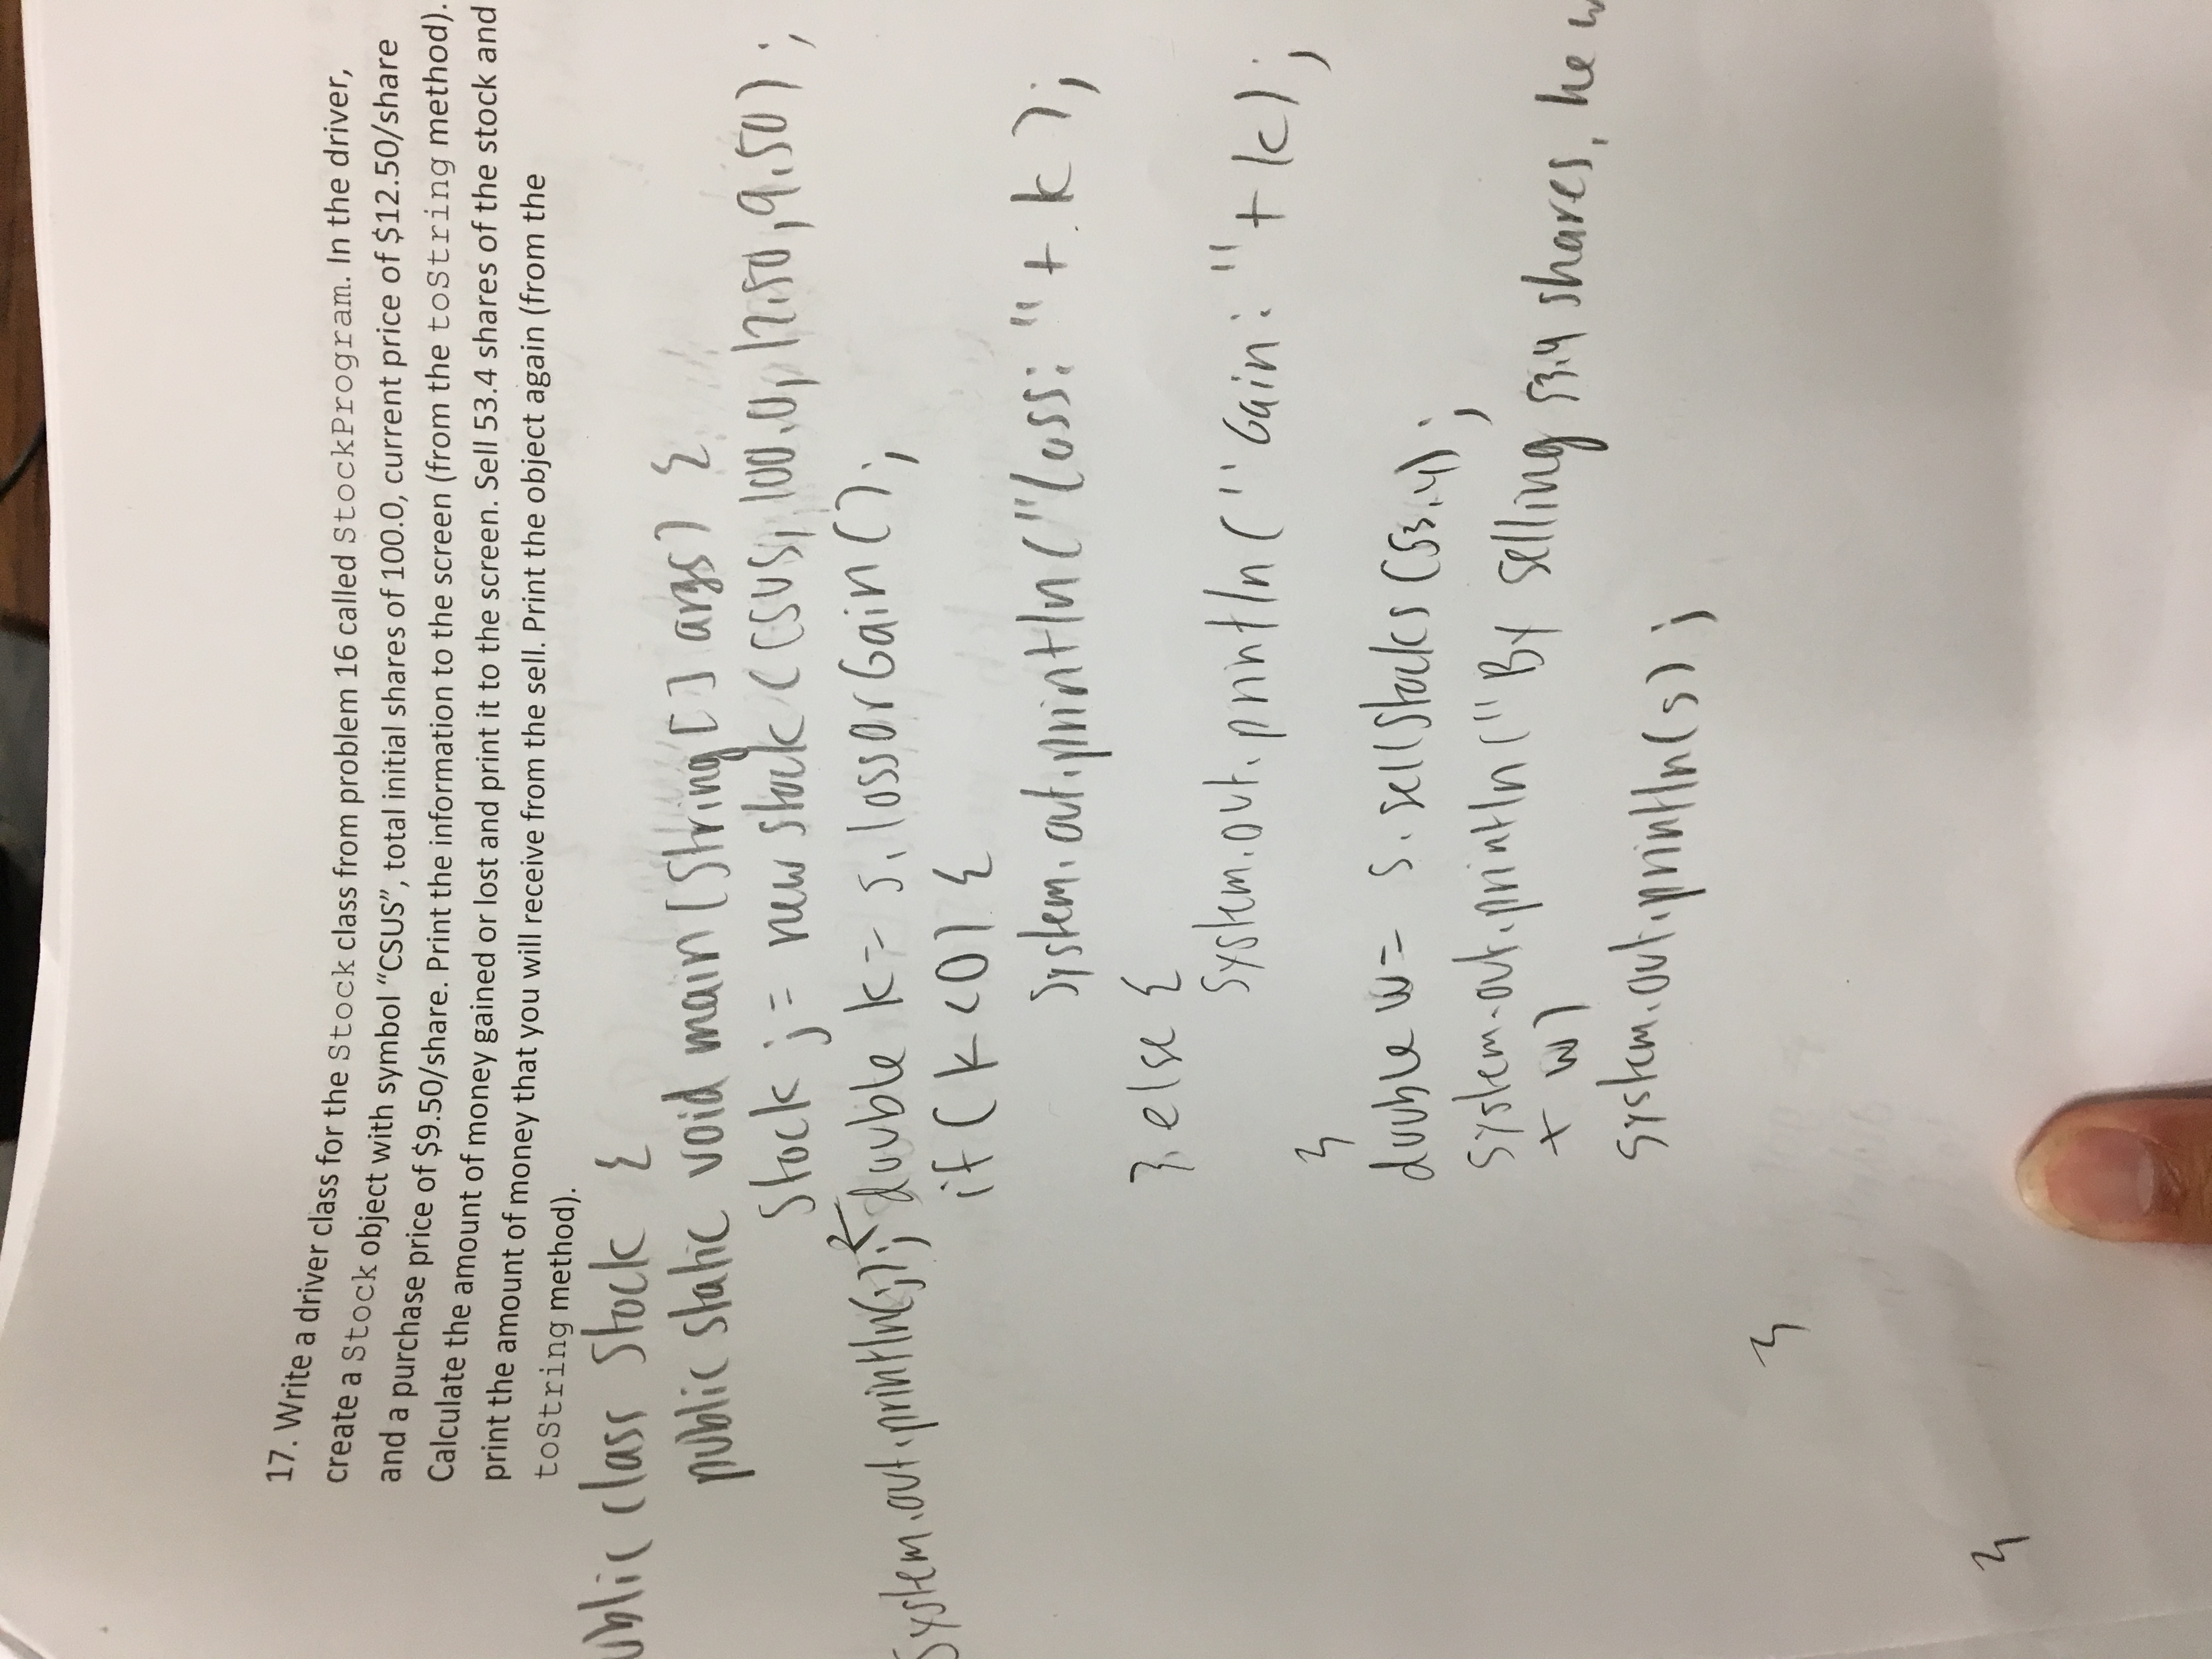 17. Write a driver class for the Stock class from problem 16 called StockProgram. In the driver,
create a Stock object with symbol “CSUS”, total initial shares of 100.0, current price of $12.50/share
and a purchase price of $9.50/share. Print the information to the screen (from the toString method).
Calculate the amount of money gained or lost and print it to the screen. Sell 53.4 shares of the stock and
print the amount of money that you will receive from the sell. Print the object again (from the
toString method).
ublic class Stock {
public static void main (String [] args) {
Stock j = new stock (CSUS, 100.0, 12.50, 9.50);
System.out.println(j);
double k = s.lossOrGain();
if (k < 0) {
System.out.println("loss: " + k);
} else {
System.out.println("Gain: " + k);
}
double w = s.sellStocks (53.4);
System.out.println("By selling 53.4 shares, he w
+ w)
System.out.println(s);
}
}